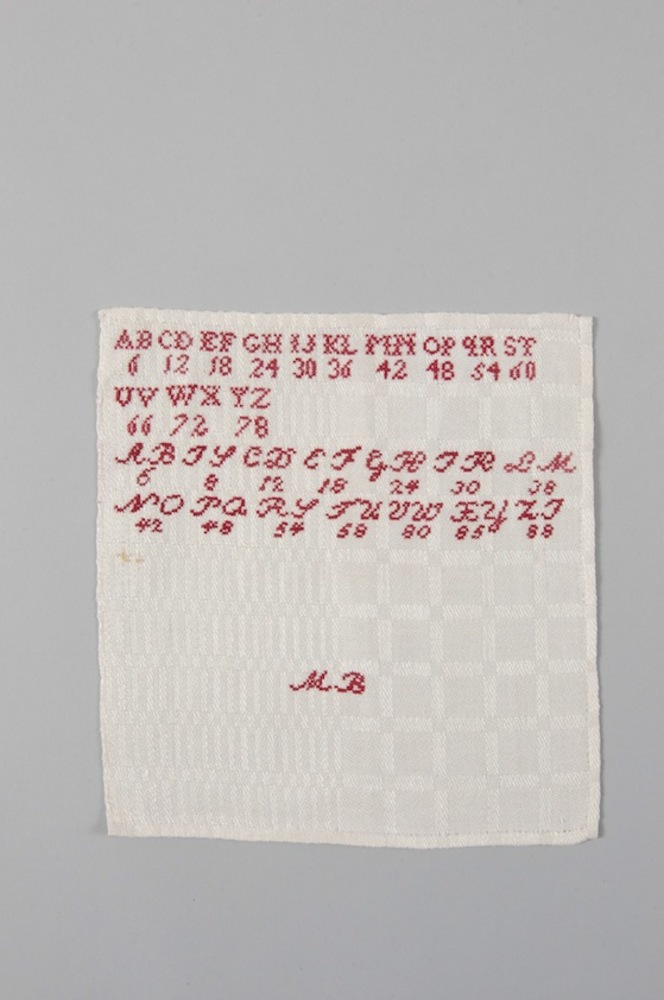 AB CD EF GH IJ KL MN OP QR ST
6 12 18 24 30 36 42 48 54 60
UV WX YZ
66 72 78
AB IS CD EF GH IK LM
6 8 12 18 24 30 38
NO PQ RS TU VW XY ZI
42 48 54 68 80 85 88
M.B